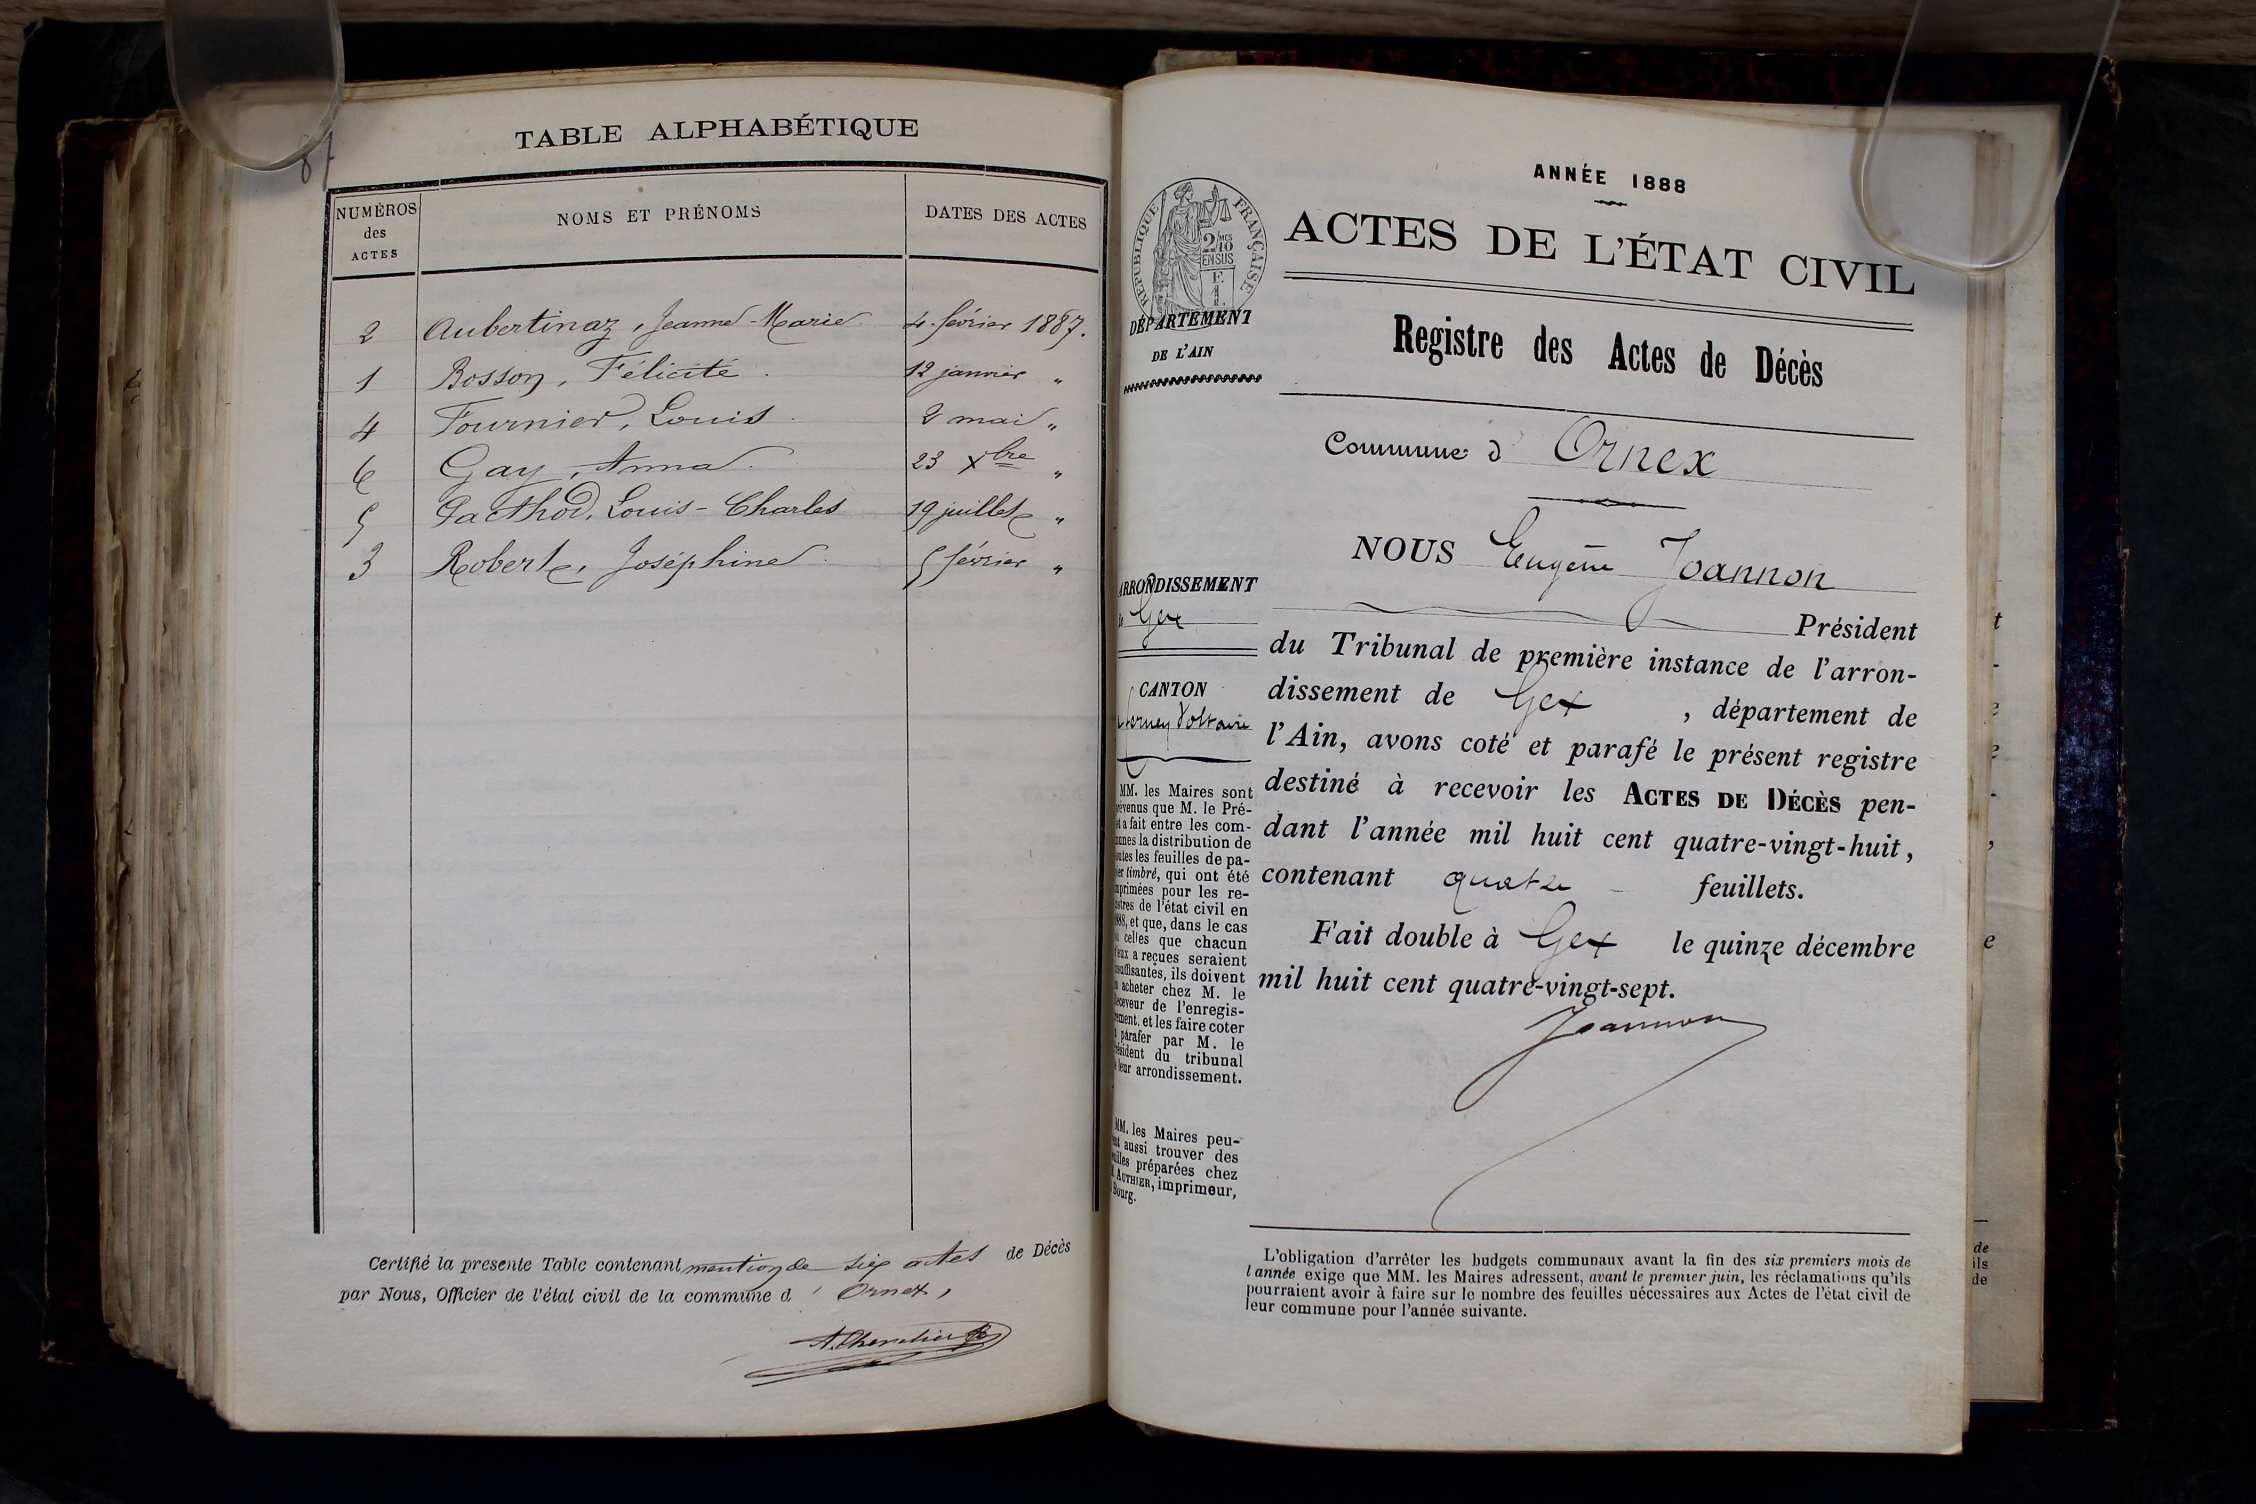 87
TABLE ALPHABÉTIQUE
NUMÉROS
des
ACTES
NOMS ET PRÉNOMS
DATES DES ACTES
2 Aubertinaz, Jeanne-Marie 4 février 1887.
1 Bosson, Félicité 12 janvier "
4 Fournier, Louis 2 mai "
6 Gay, Anna 23 Xbre "
5 Pacthod, Louis-Charles 19 juillet "
3 Robert, Joséphine 5 février "
Certifié la presente Table contenant mention de six actes de Décès
par Nous, Officier de l'état civil de la commune d' Ornex,
A. Chevalier
ANNÉE 1888
RÉPUBLIQUE FRANÇAISE
2/10
EN SUS
F.
1.
ACTES DE L'ÉTAT CIVIL
DÉPARTEMENT
DE L'AIN
Registre des Actes de Décès
Commune d' Ornex
NOUS Eugène Joannon
Président
du Tribunal de première instance de l'arron-
dissement de Gex , département de
l'Ain, avons coté et parafé le présent registre
destiné à recevoir les ACTES DE DÉCÈS pen-
dant l'année mil huit cent quatre-vingt-huit,
contenant quatre feuillets.
Fait double à Gex le quinze décembre
mil huit cent quatre-vingt-sept.
Joannon
ARRONDISSEMENT
de Gex
CANTON
Ferney Voltaire
MM. les Maires sont
prévenus que M. le Pré-
fet a fait entre les com-
munes la distribution de
toutes les feuilles de pa-
pier timbré, qui ont été
imprimées pour les re-
gistres de l'état civil en
1888, et que, dans le cas
où celles que chacun
d'eux a reçues seraient
insuffisantes, ils doivent
en acheter chez M. le
Receveur de l'enregis-
trement, et les faire coter
et parafer par M. le
Président du tribunal
de leur arrondissement.
MM. les Maires peu-
vent aussi trouver des
feuilles préparées chez
M. AUTHIER, imprimeur,
Bourg.
L'obligation d'arrêter les budgets communaux avant la fin des six premiers mois de
l'année exige que MM. les Maires adressent, avant le premier juin, les réclamations qu'ils
pourraient avoir à faire sur le nombre des feuilles nécessaires aux Actes de l'état civil de
leur commune pour l'année suivante.